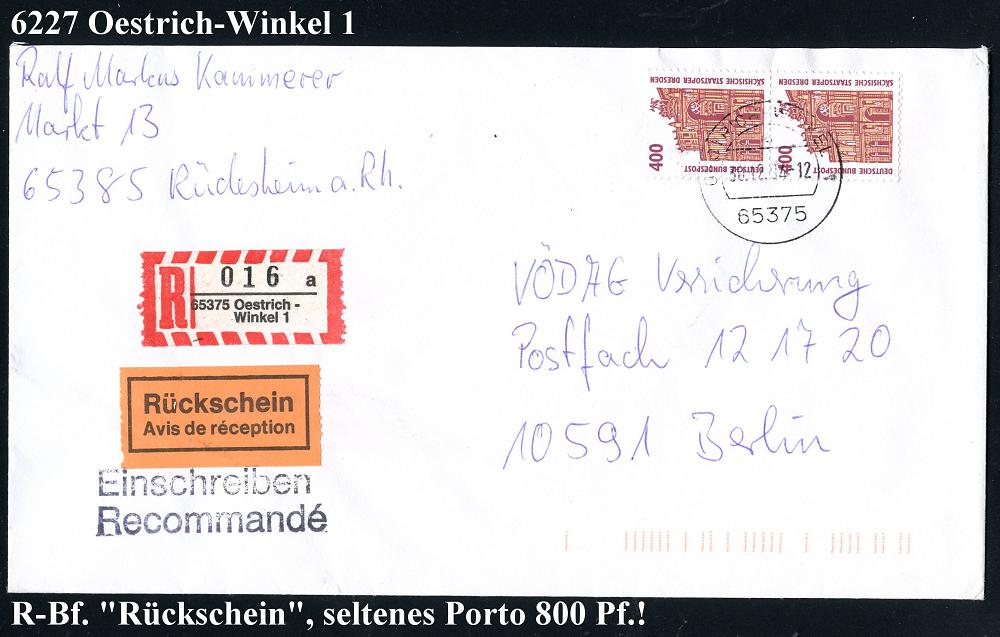 6227 Oestrich-Winkel 1
Ralf Markus Kammerer
Markt 13
65385 Rüdesheim a. Rh.
SÄCHSISCHE STAATSOPER DRESDEN
400
DEUTSCHE BUNDESPOST
SÄCHSISCHE STAATSOPER DRESDEN
400
DEUTSCHE BUNDESPOST
65375
R
016 a
65375 Oestrich -
Winkel 1
VÖDAG Versicherung
Postfach 12 17 20
10591 Berlin
Rückschein
Avis de réception
Einschreiben
Recommandé
R-Bf. "Rückschein", seltenes Porto 800 Pf.!